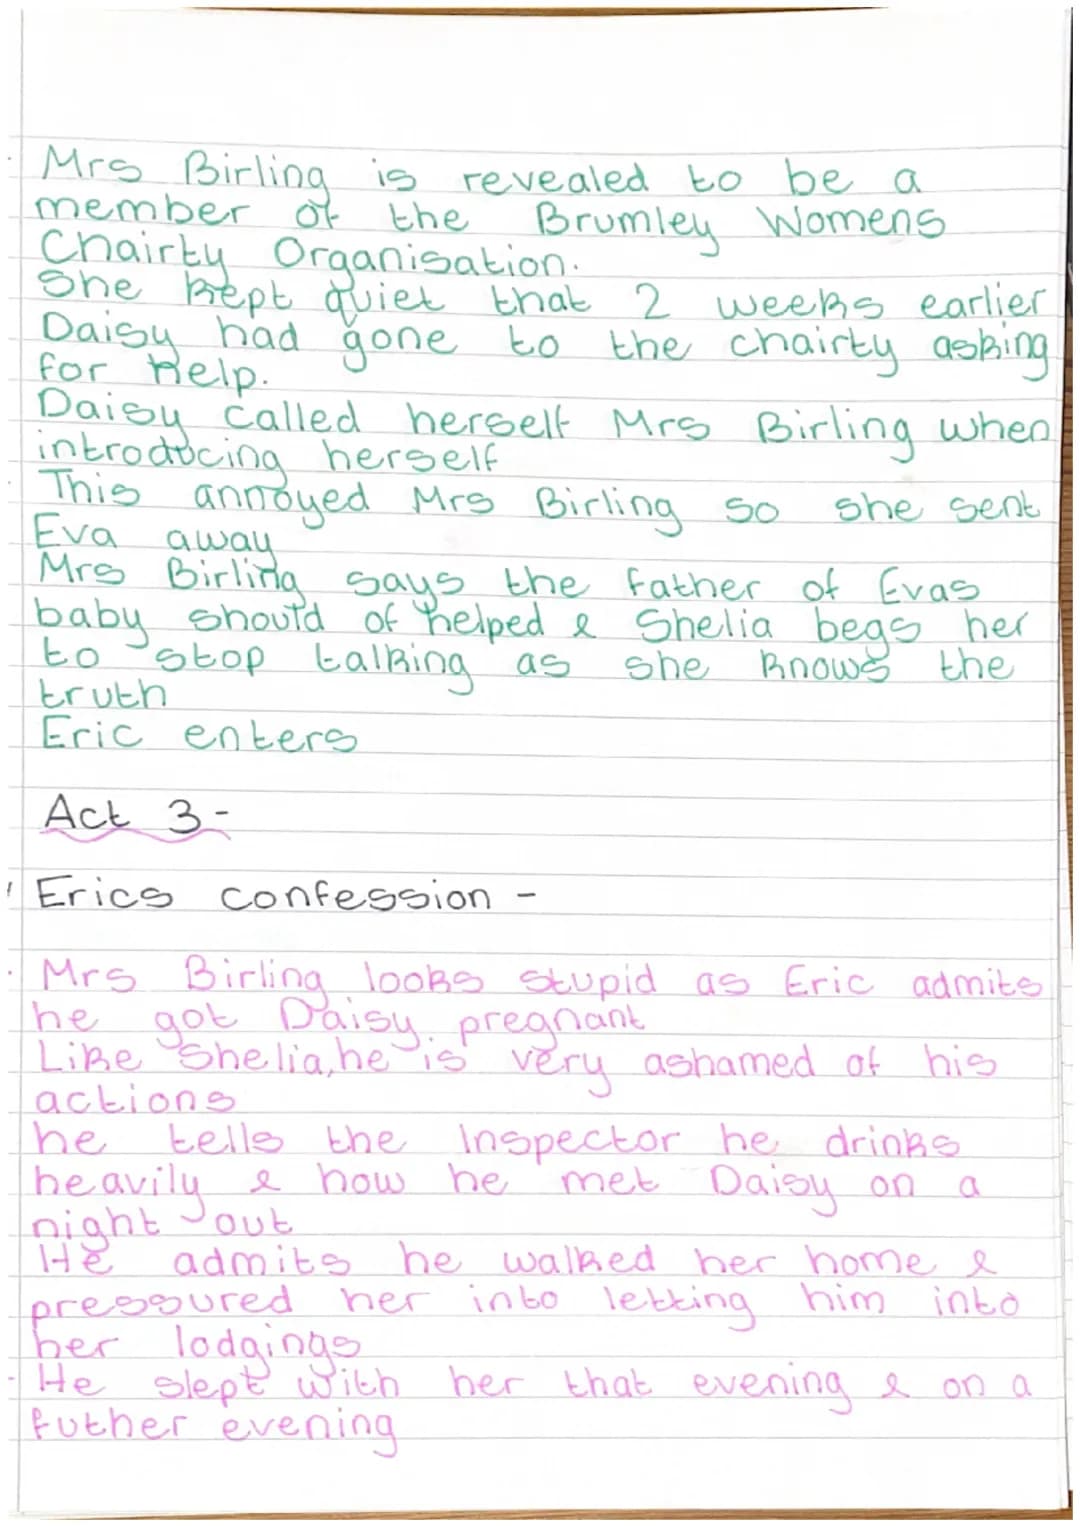 Mrs Birling is revealed to be a
member of the Brumley Womens
Chairty Organisation.
She kept quiet that 2 weeks earlier
Daisy had gone to the chairty asking
for help.
Daisy called herself Mrs Birling when
introducing herself
This annoyed Mrs Birling so she sent
Eva away
Mrs Birling says the father of Evas
baby should of helped & Shelia begs her
to stop talking as she knows the
truth
Eric enters
Act 3-
Erics confession -
Mrs Birling looks stupid as Eric admits
he got Daisy pregnant
Like Shelia, he is very ashamed of his
actions
he tells the Inspector he drinks
heavily & how he met Daisy on a
night out
He admits he walked her home &
pressured her into letting him into
her lodgings
- He slept with her that evening & on a
futher evening